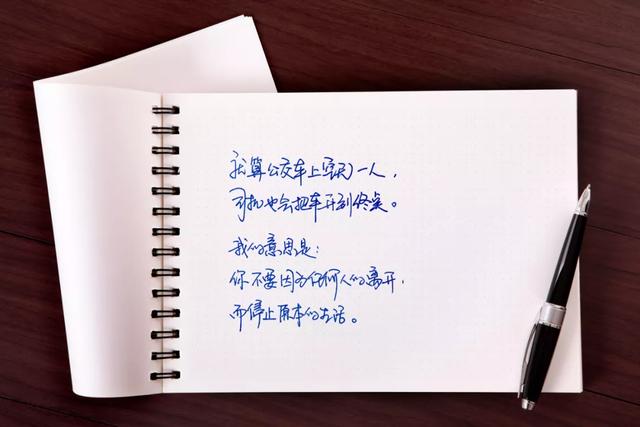 就算公交车上空无一人，
司机也会把车开到终点。
我的意思是：
你不要因为任何人的离开，
而停止原本的生活。